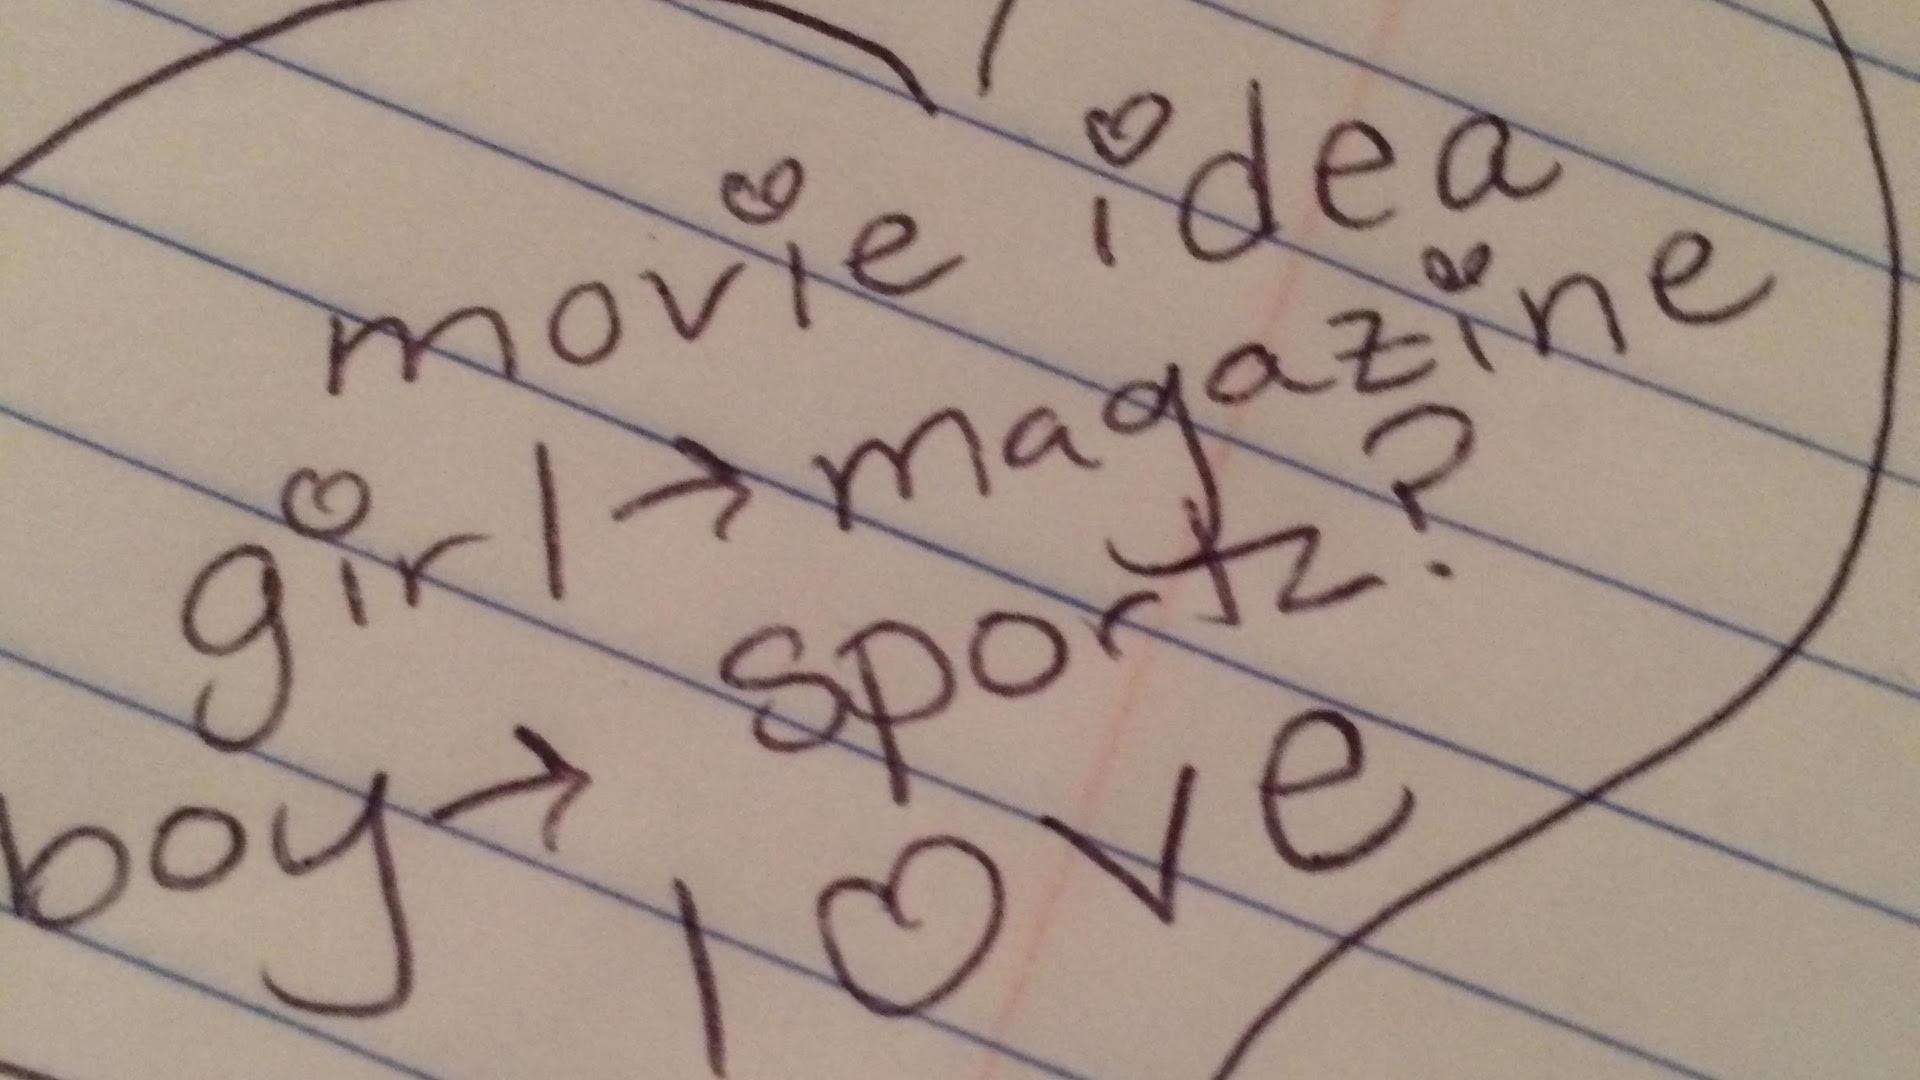 movie idea
girl → magazine
boy → sportz?
love